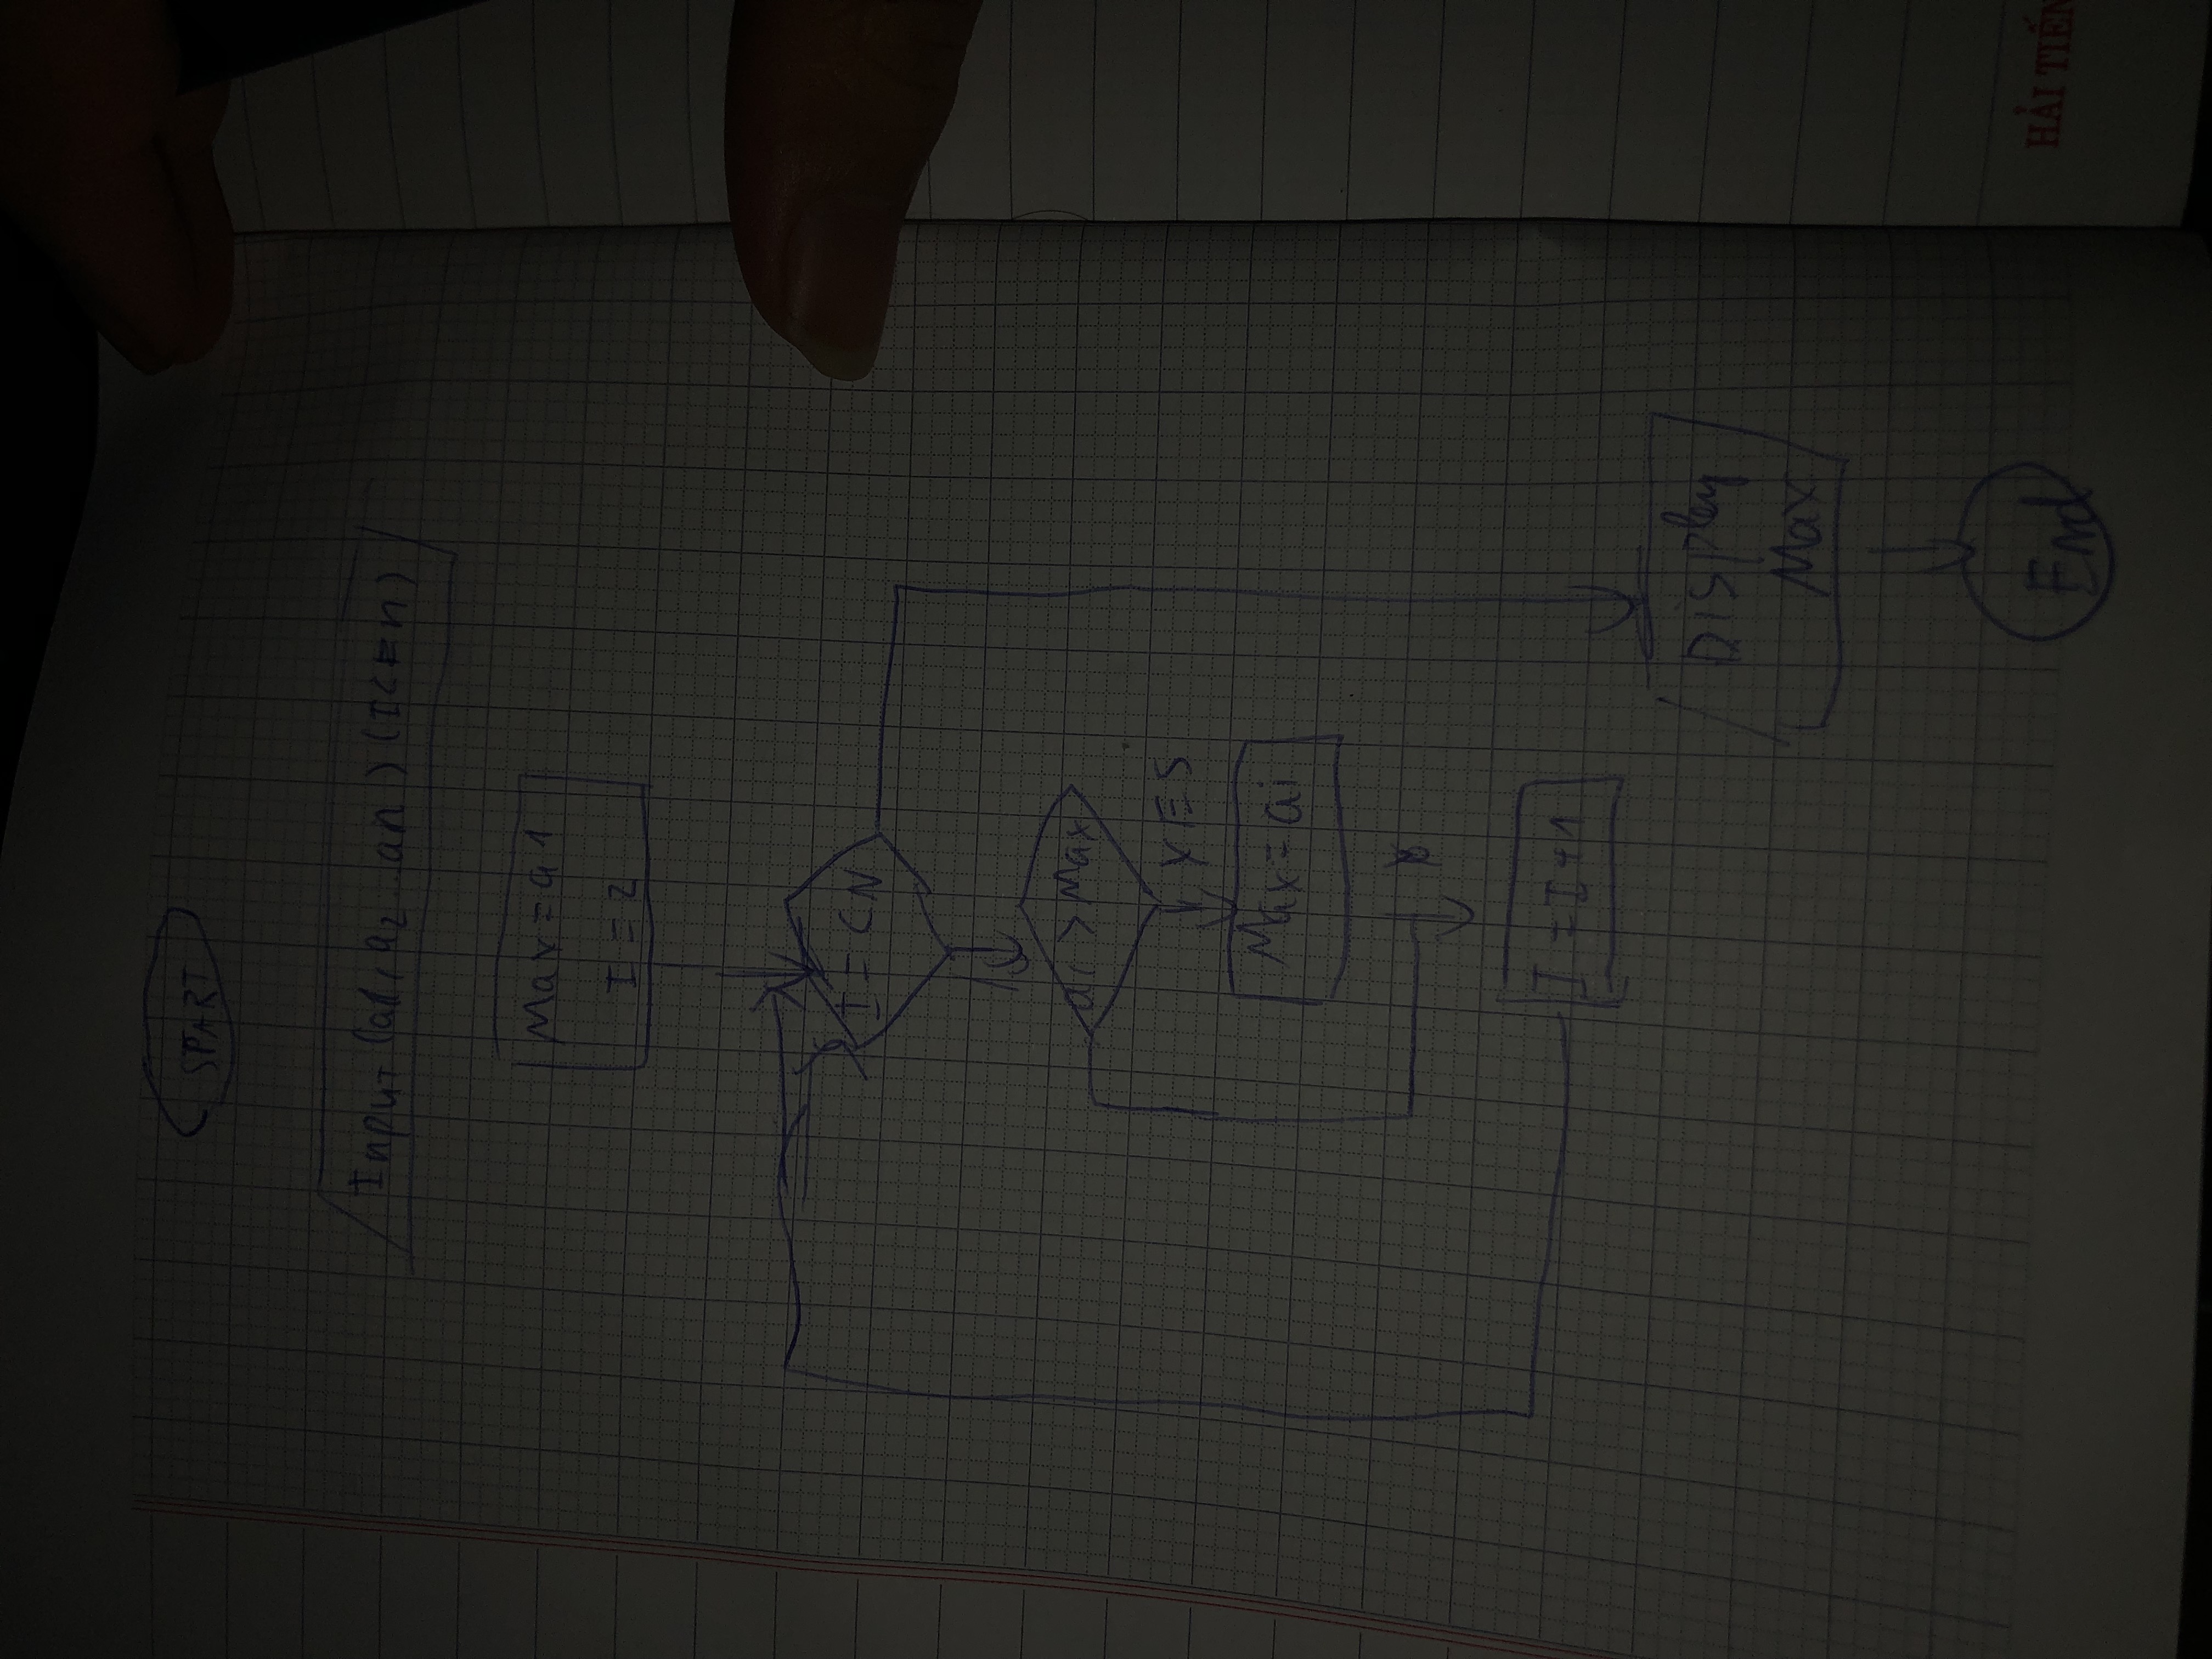 START
Input (a1, a2 ... an) (I<=n)
Max = a1
I = 2
I = < N
ai > Max
YES
Max = ai
I = I + 1
Display
Max
End
HẢI TIẾN